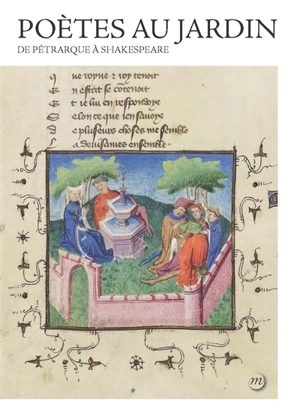 POÈTES AU JARDIN
DE PÉTRARQUE À SHAKESPEARE
que royne & roy tenoit
n estat se contenoit
t je lui en respondye
elon ce que j en savoye
e plusieurs choses me semble
a de la mes ensemble
m